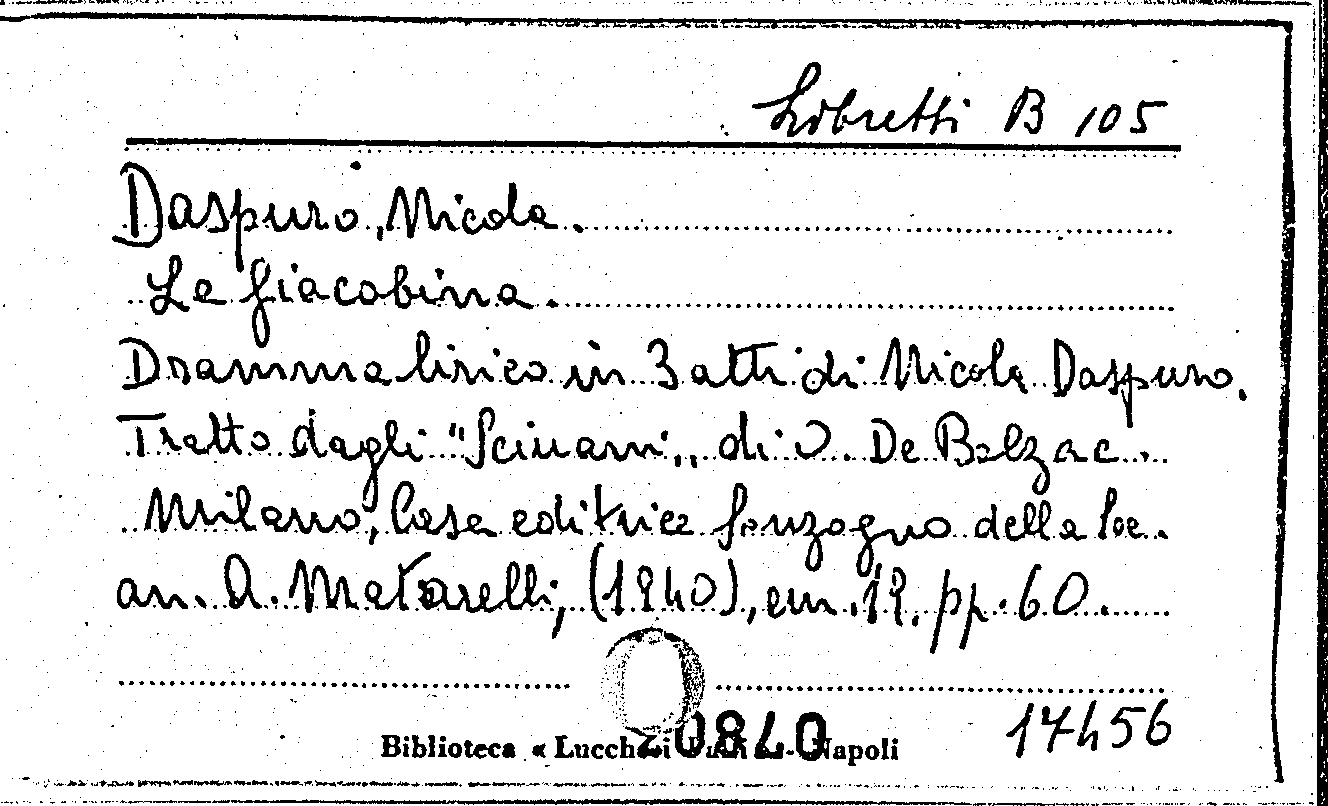 Libretti B 105
Daspuro, Nicola.
La Giacobina.
Dramma lirico in 3 atti di Nicola Daspuro.
Tratto dagli "Sciuani" di O. De Balzac.
Milano, Casa editrice Sonzogno della Soc.
an. A. Matarelli, (1940), cm. 19. pp. 60.
17456
Biblioteca « Napoli